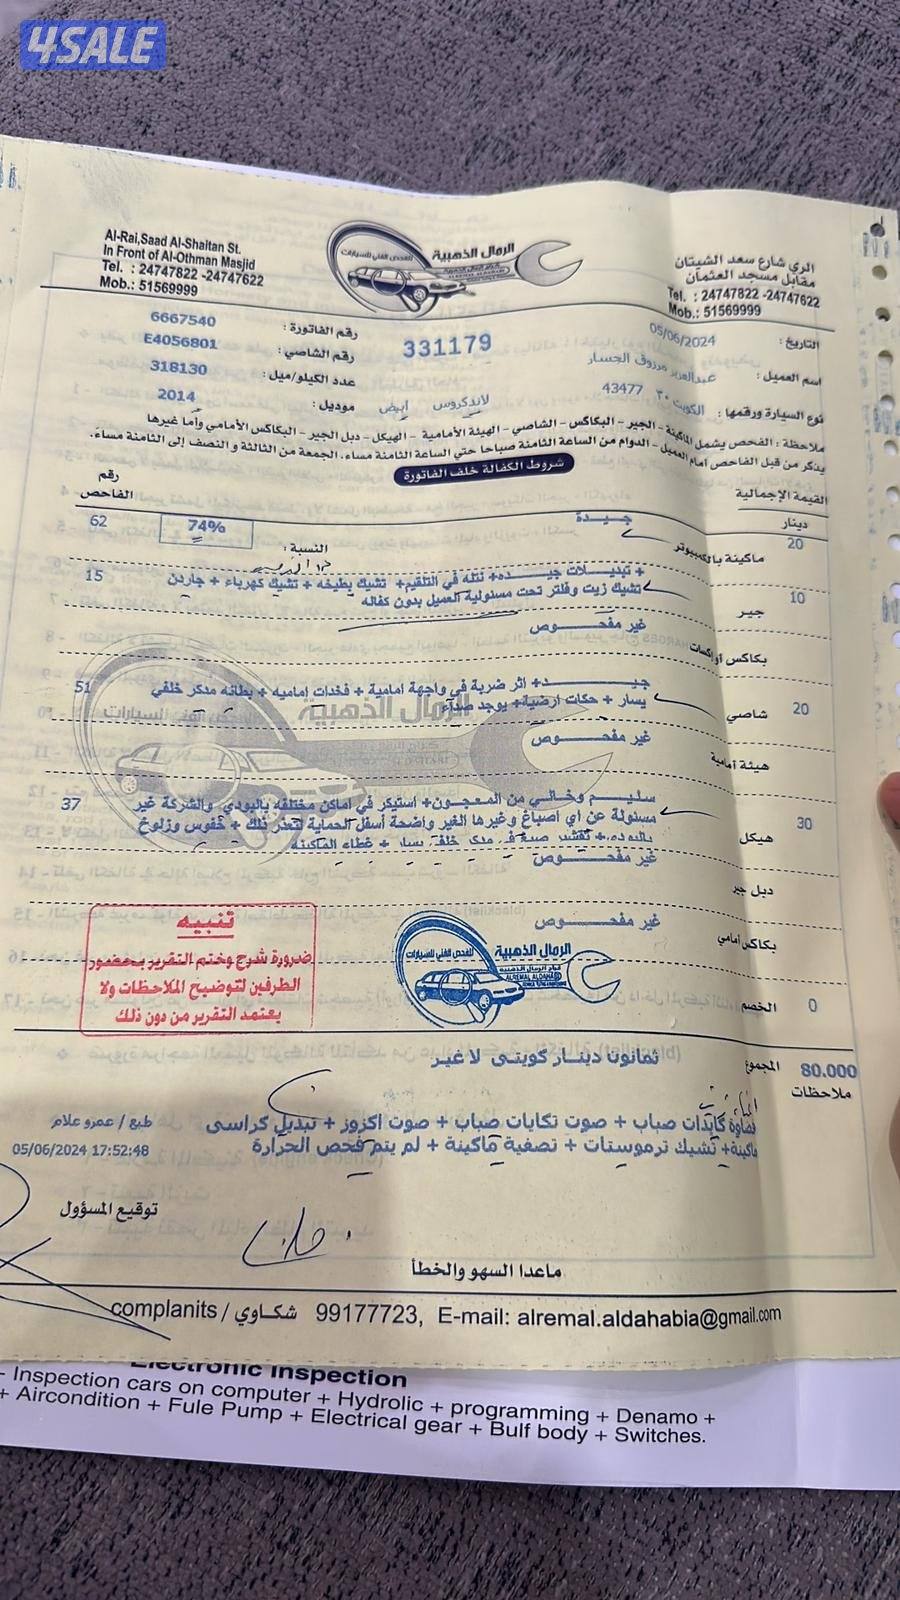 4SALE
Al-Rai,Saad Al-Shaitan St.
In Front of Al-Othman Masjid
Tel. : 24747822 -24747622
Mob.: 51569999
الرمال الذهبية
للفحص الفني للسيارات
الري شارع سعد الشيتان
مقابل مسجد العثمان
Tel. : 24747822 -24747622
Mob.: 51569999
التاريخ : 05/06/2024
331179
رقم الفاتورة : 6667540
اسم العميل : عبدالعزيز مرزوق الجسار
رقم الشاصي : E4056801
نوع السيارة ورقمها : الكويت ٣٠ 43477 لاندكروس أبيض
عدد الكيلو/ميل : 318130
موديل : 2014
ملاحظة : الفحص يشمل الماكينة - الجير - البكاكس - الشاصي - الهيئة الأمامية - الهيكل - دبل الجير - البكاكس الأمامي وأما غيرها
يذكر من قبل الفاحص أمام العميل - الدوام من الساعة الثامنة صباحا حتى الساعة الثامنة مساء، الجمعة من الثالثة و النصف إلى الثامنة مساء.
شروط الكفالة خلف الفاتورة
القيمة الإجمالية
دينار
رقم الفاحص
20 ماكينة بالكمبيوتر جيدة النسبة : 74% 62
10 جير + تبديلات جيده+ نتله في التلقيم+ تشيك بطيخه + تشيك كهرباء + جاردن 15
تشيك زيت وفلتر تحت مسئولية العميل بدون كفاله
بكاكس أو إكسات غير مفحوص
20 شاصي جيد+ اثر ضربة في واجهة امامية + فخدات اماميه + بطانه مدكر خلفي 51
يسار + حكات ارضية+ يوجد صدأء
هيئة أمامية غير مفحوص
30 هيكل سليم وخالي من المعجون+ أستيكر في أماكن مختلفه بالبودي والشركة غير 37
مسئولة عن اي اصباغ وغيرها الغير واضحة أسفل الحماية لتعذر ذلك + خفوس وزلوخ
بالبوده + تقشير صبغ في مدكر خلفي يسار + غطاء الماكينة
دبل جير غير مفحوص
بكاكس أمامي غير مفحوص
الخصم 0
تنبيه
ضرورة شرح وختم التقرير بحضور
الطرفين لتوضيح الملاحظات ولا
يعتمد التقرير من دون ذلك
الرمال الذهبية
للفحص الفني للسيارات
ALREMAL ALDAHABI
80.000 المجموع ثمانون دينار كويتى لا غير
ملاحظات
قضاوة گايدات صباب + صوت تكايات صباب + صوت اكزوز + تبديل كراسى
ماكينة+ تشيك ترموستات + تصفية ماكينة + لم يتم فحص الحرارة
طبع / عمرو علام
05/06/2024 17:52:48
توقيع المسؤول
ماعدا السهو والخطأ
complanits / شكاوي 99177723, E-mail: alremal.aldahabia@gmail.com
Electronic Inspection
- Inspection cars on computer + Hydrolic + programming + Denamo +
+ Aircondition + Fule Pump + Electrical gear + Bulf body + Switches.